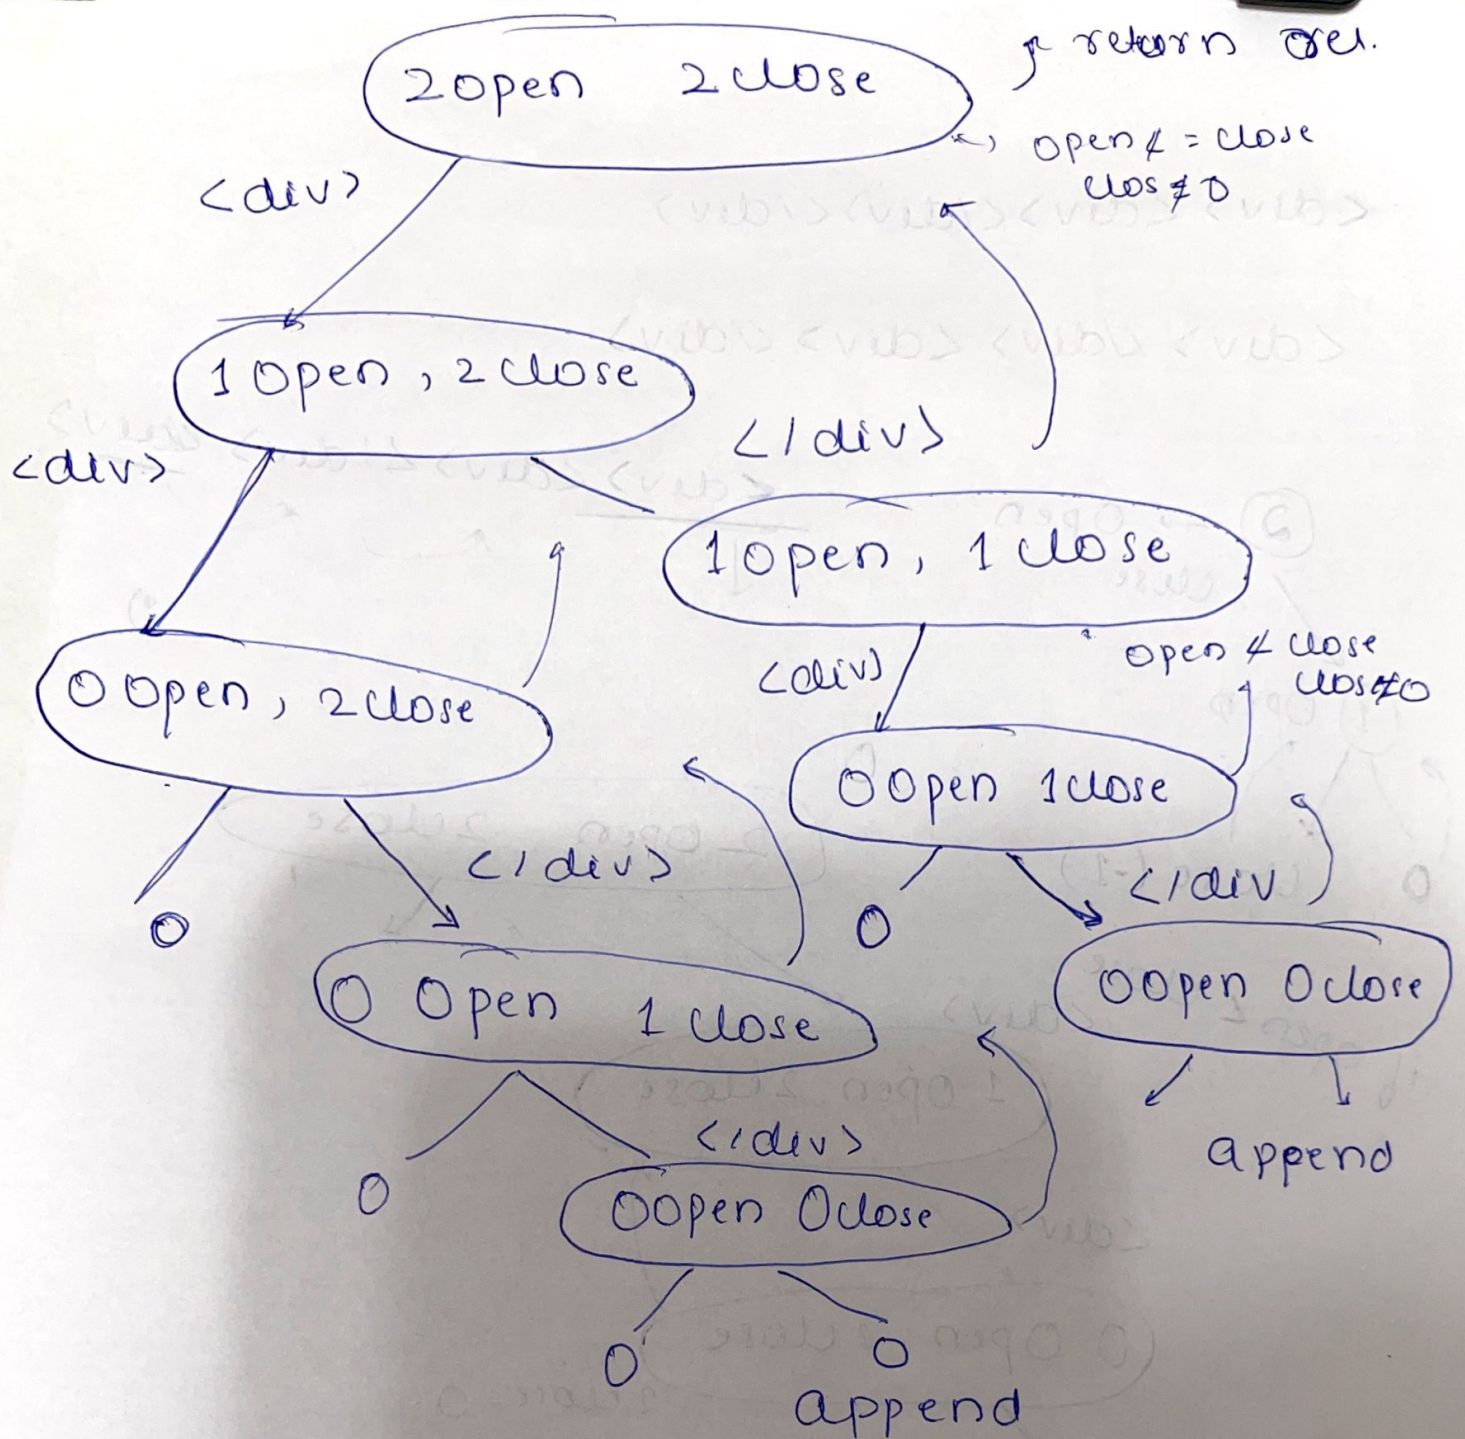 2open 2close
return res.
open ≮ = close
clos ≠ 0
<div>
1 open, 2 close
</div>
<div>
1 open, 1 close
open ≮ close
clos ≠ 0
<div>
0 open, 2 close
0 open 1 close
</div>
</div
0
0
0 open 0 close
0 open 1 close
append
</div>
0
0 open 0 close
0
0
append